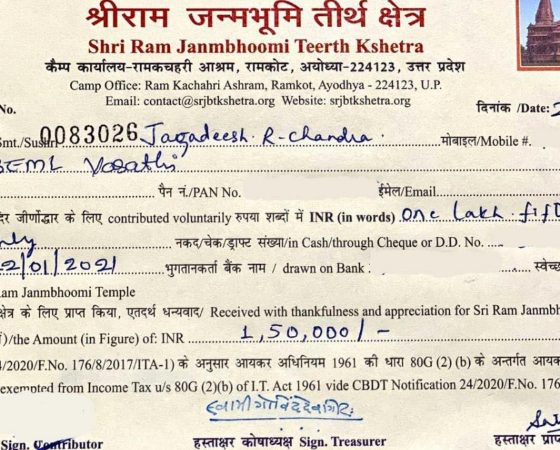 श्रीराम जन्मभूमि तीर्थ क्षेत्र
Shri Ram Janmbhoomi Teerth Kshetra
कैम्प कार्यालय-रामकचहरी आश्रम, रामकोट, अयोध्या-224123, उत्तर प्रदेश
Camp Office: Ram Kachahri Ashram, Ramkot, Ayodhya - 224123, U.P.
Email: contact@srjbtkshetra.org Website: srjbtkshetra.org
No. दिनांक /Date:
Smt./Sushri 0083026 Jagadeesh. R-Chandra. मोबाइल/Mobile #.
BEML
पैन नं./PAN No. ईमेल/Email
दिर जीर्णोद्धार के लिए contributed voluntarily रुपया शब्दों में INR (in words) One lakh fif
nly नकद/चेक/ड्राफ्ट संख्या/in Cash/through Cheque or D.D. No.
22/01/2021 भुगतानकर्ता बैंक नाम / drawn on Bank : स्वेच्छ
am Janmbhoomi Temple
क्षेत्र के लिए प्राप्त किया, एतदर्थ धन्यवाद/ Received with thankfulness and appreciation for Sri Ram Janmbh
)/the Amount (in Figure) of: INR 1,50,000/-
4/2020/F.No. 176/8/2017/ITA-1) के अनुसार आयकर अधिनियम 1961 की धारा 80G (2) (b) के अन्तर्गत आयक
exempted from Income Tax u/s 80G (2)(b) of I.T. Act 1961 vide CBDT Notification 24/2020/F.No. 176
स्वामी गोविंददेव गिरि
Sign. Contributor हस्ताक्षर कोषाध्यक्ष Sign. Treasurer हस्ताक्षर प्राप्